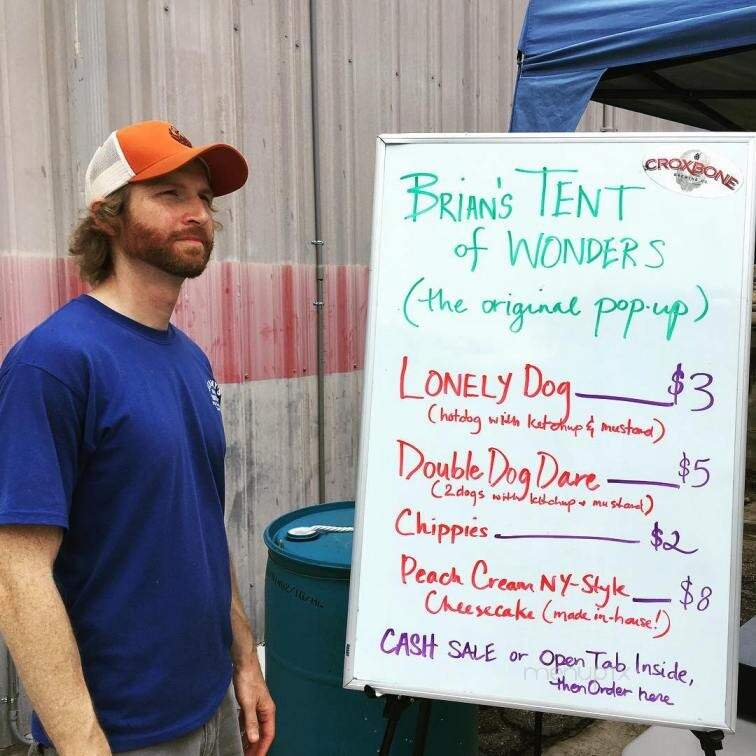 CROXBONE
BREWING CO.
BRIAN'S TENT
of WONDERS
(the original pop-up)
LONELY Dog $3
(hotdog with ketchup & mustard)
Double Dog Dare $5
(2 dogs with ketchup + mustard)
Chippies $2
Peach Cream NY-Style $8
Cheesecake (made in-house!)
CASH SALE or Open Tab Inside,
then Order here
menupix